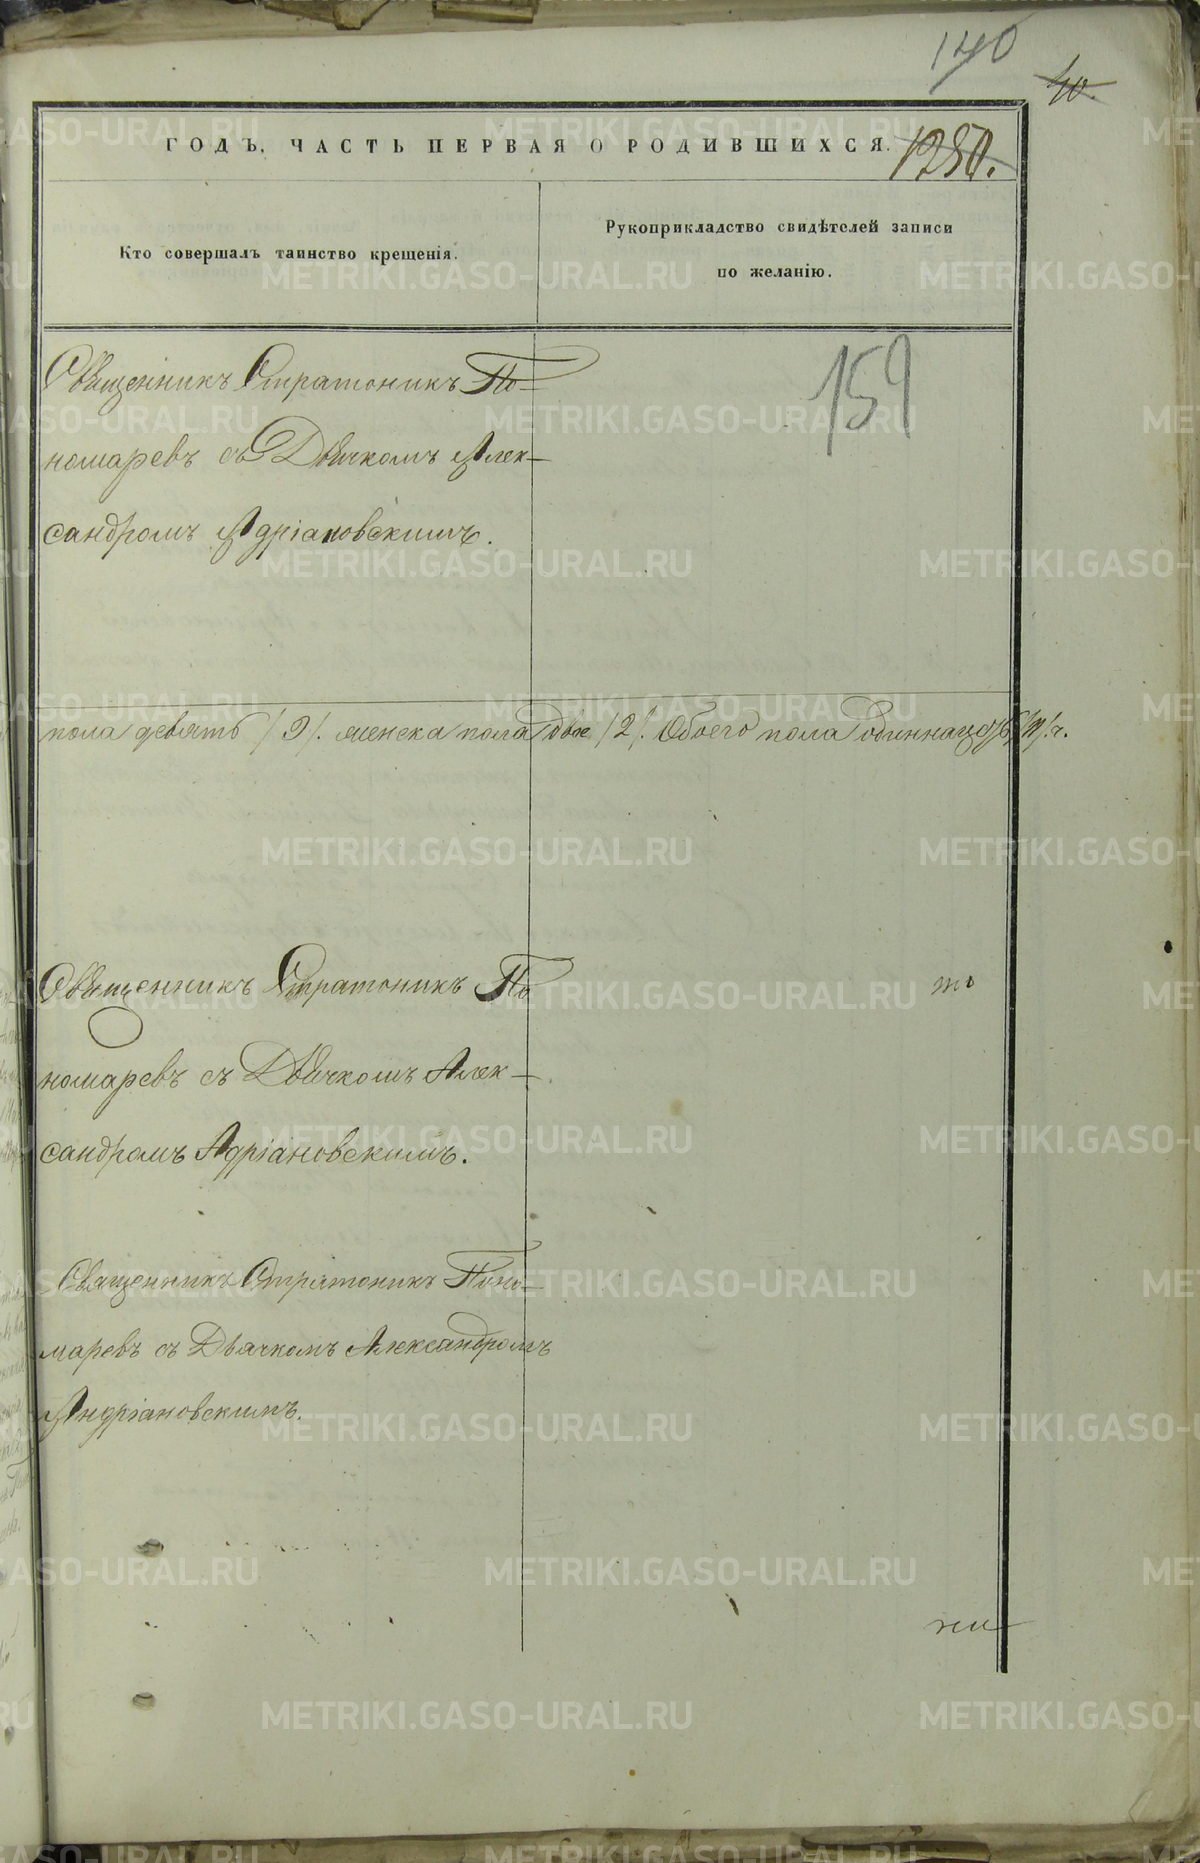 140
40.
ГОДЪ, ЧАСТЬ ПЕРВАЯ О РОДИВШИХСЯ.
1280.
Кто совершалъ таинство крещенія.
Рукоприкладство свидѣтелей записи
по желанію.
159
Священникъ Стратоникъ По-
номаревъ съ Дьячкомъ Алек-
сандромъ Адріановскимъ.
пола девять /9/. женска пола две /2/. Обоего пола одиннацать /11/.
Священникъ Стратоникъ По
номаревъ съ Дьячкомъ Алек-
сандромъ Адріановскимъ.
Священникъ Стратоникъ Поно-
маревъ съ Дьячкомъ Александромъ
Андріановскимъ.
METRIKI.GASO-URAL.RU